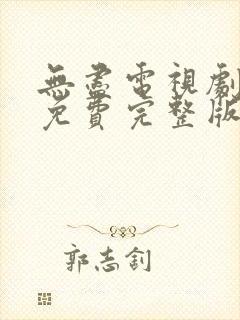 無盡電視劇
免費完整版
郭志釗